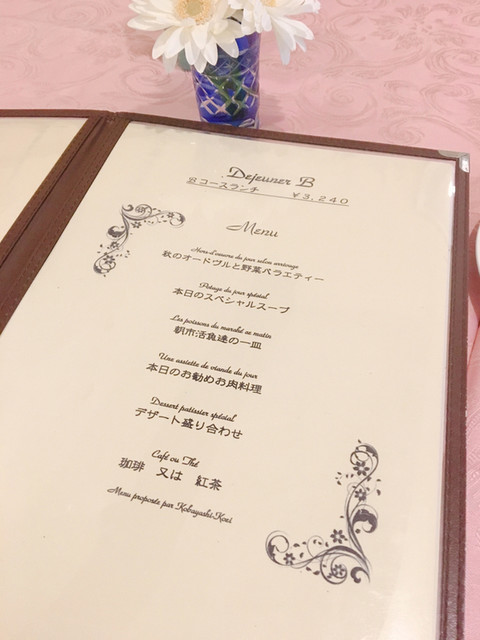 Dejeuner B
Bコースランチ ¥3,240
Menu
Hors-d'oeuvre du jour selon arrivage
秋のオードヴルと野菜バラエティー
Potage du jour spécial
本日のスペシャルスープ
Les poissons du marché ce matin
朝市活魚達の一皿
Une assiette de viande du jour
本日のお勧めお肉料理
Dessert patissier spécial
デザート盛り合わせ
Café ou Thé
珈琲 又は 紅茶
Menu proposée par Kobayashi Koei